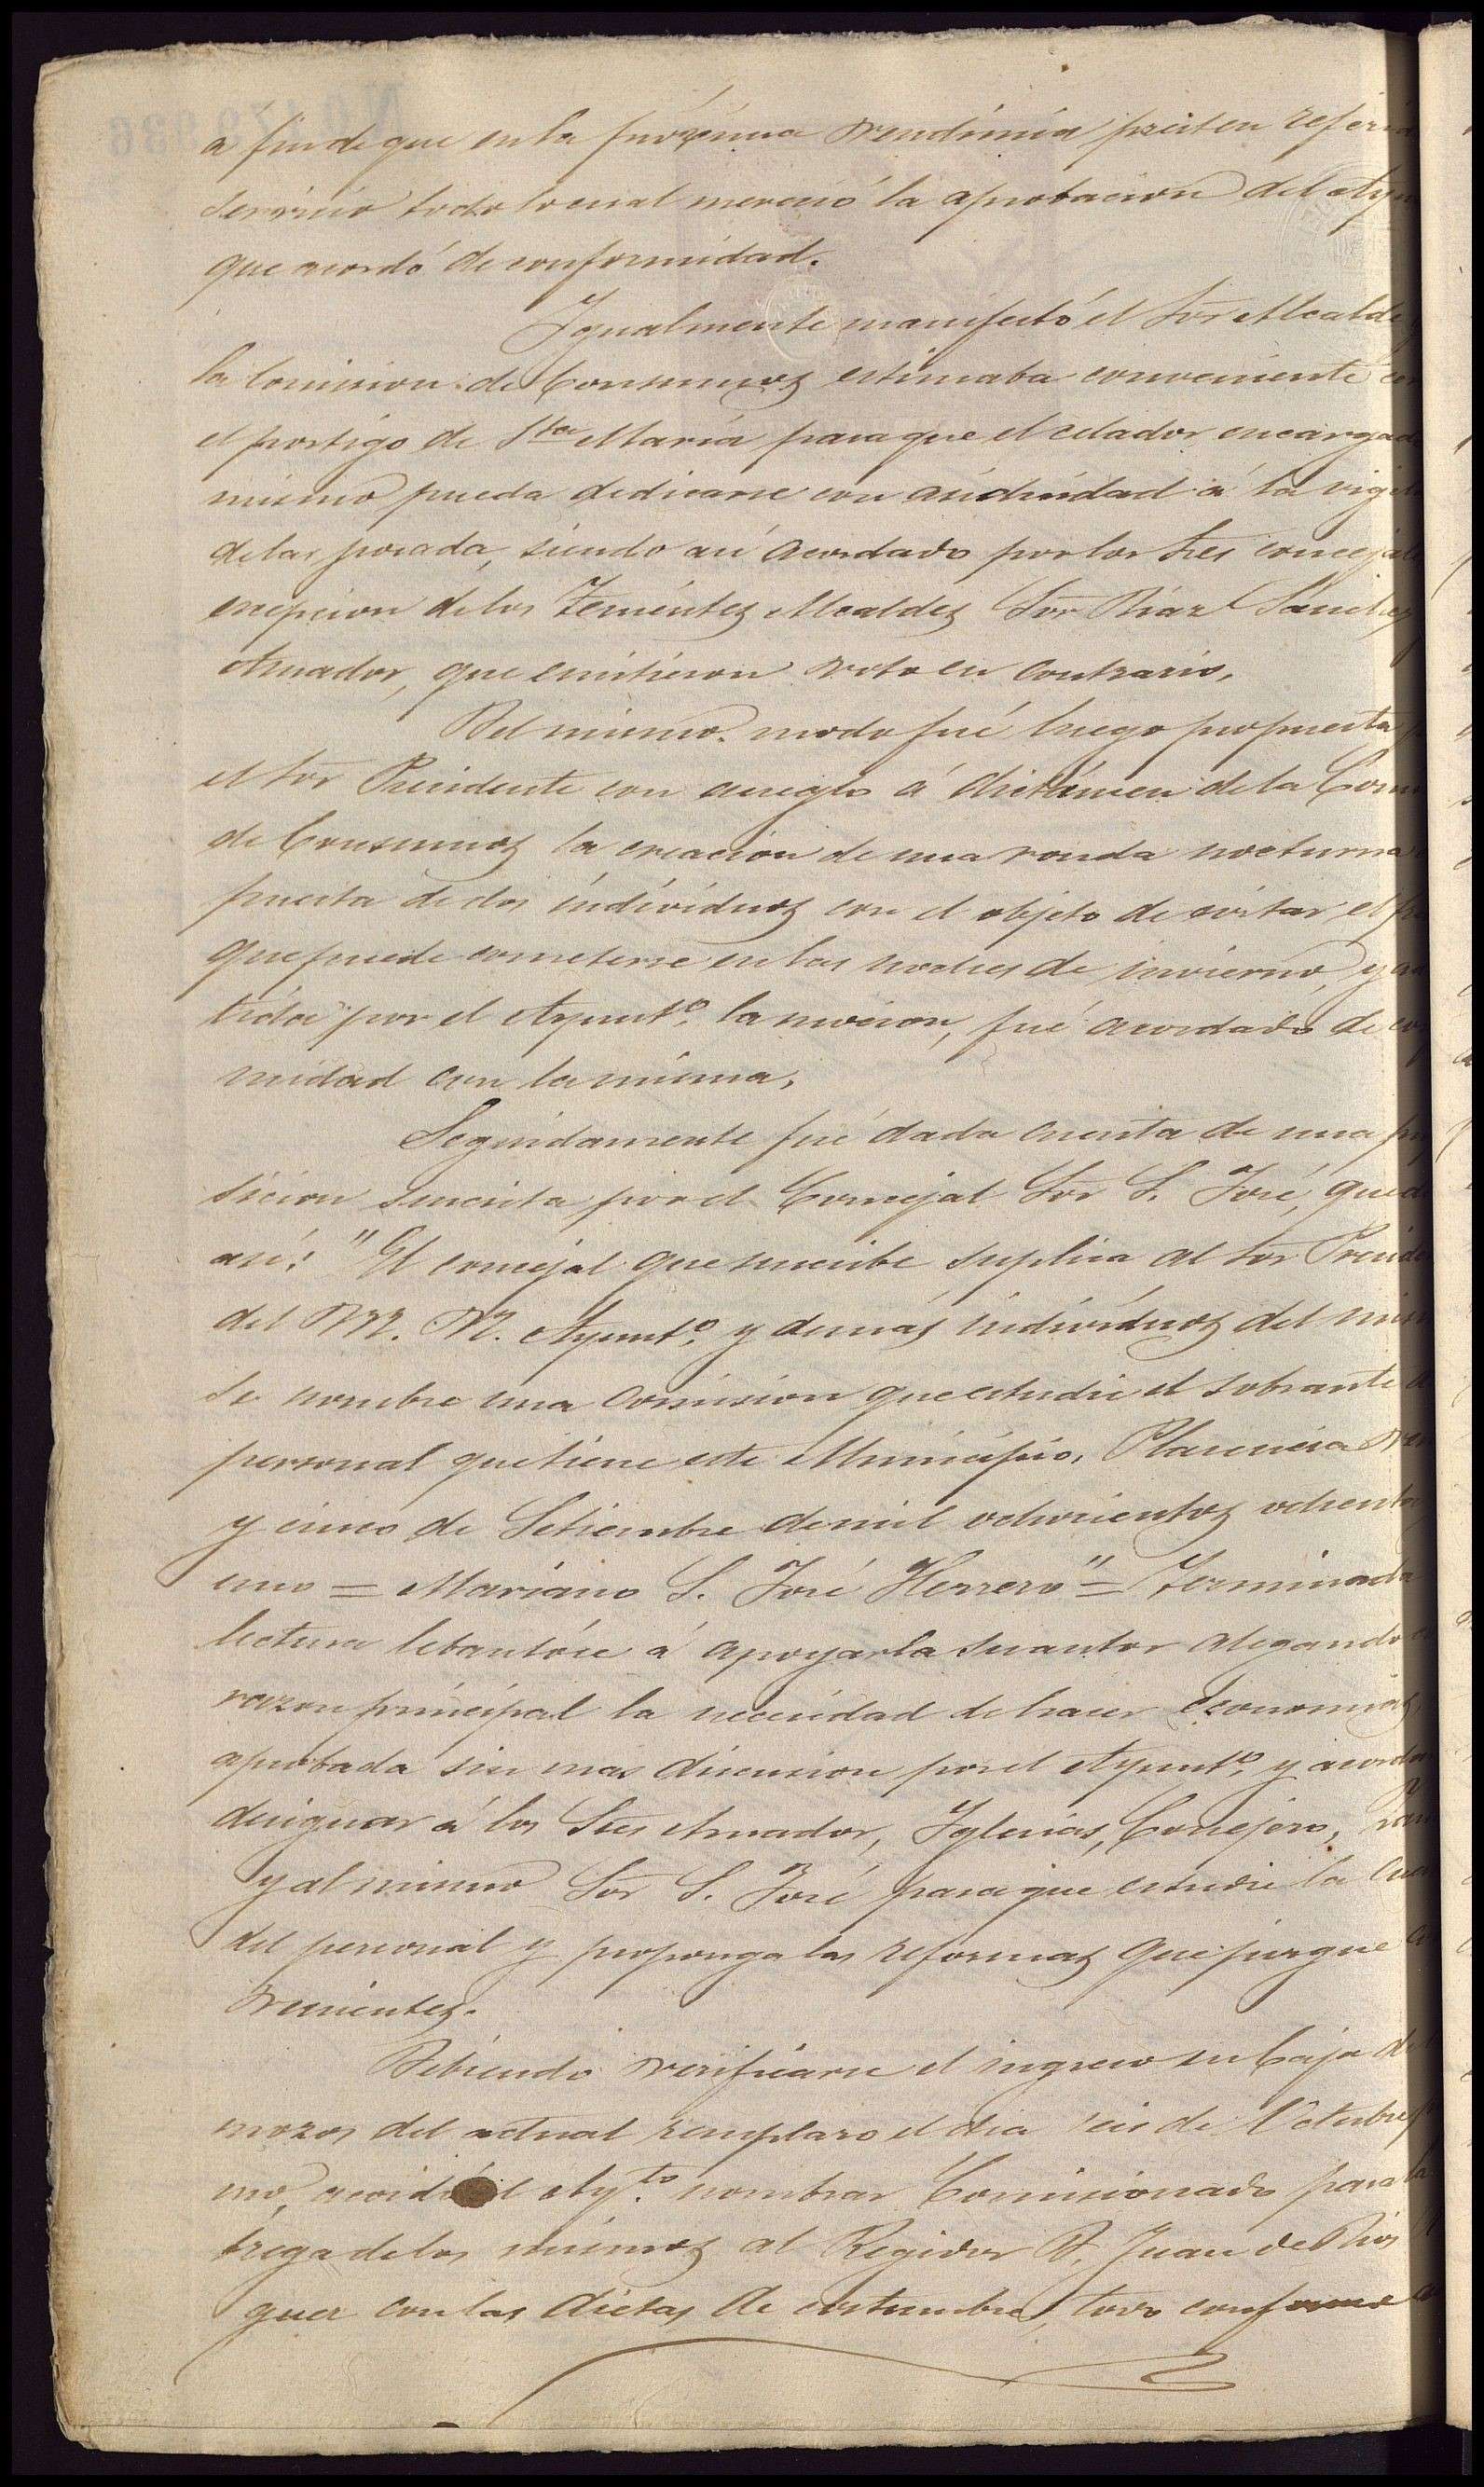 á fin de que en la próxima vendimia presten referi
servicio todo lo cual mereció la aprobacion del Ayu
que acordó de conformidad.
Igualmente manifestó el Sor Alcalde
la Comision de Consumos estimaba conveniente cer
el postigo de Sta Maria para que el celador encargad
mismo pueda dedicarse con asiduidad á la vigil
de las posada, siendo asi acordado por los Sres concejale
escepcion de los Tenientes Alcaldes Sor Diaz Sanchez
Amador, que emitieron voto en contrario.
Del mismo modo fué luego propuesta p
el Sor Presidente con arreglo á dictámen de la Comi
de Consumos la creacion de una ronda nocturna
puesta de dos individuos con el objeto de evitar el fr
que puede cometerse en las noches de invierno, y
tida por el Ayunto. la mocion, fué acordado de co
midad con la misma.
Seguidamente fué dada cuenta de una pro
sicion suscrita por el Concejal Sor S. José, que d
asi: "El concejal que suscribe suplica al Sor Preside
del M. N. Ayunto. y demás individuos del mis
se nombre una Comision que estudie el sobrante d
personal que tiene este Municipio, Plasencia ven
y cinco de Setiembre de mil ochocientos ochenta
uno = Mariano S. José Herrero" = Terminada
lectura lebantóse á apoyarla su autor alegando c
razon principal la necesidad de hacer economias
aprobada sin mas discusion por el Ayunto. y acordó
designar á los Sres Amador, Iglesias, Conejero,
y al mismo Sor S. José para que estudie la Cues
del personal y proponga las reformas que juzgue co
venientes.
Debiendo verificarse el ingreso en Caja de
mozos del actual remplazo el dia seis de Octubre
mo, acordó el Ayto. nombrar Comisionado para la
trega de los mismos al Regidor D. Juan de Dios
guer con las dietas de costumbre, todo conforme